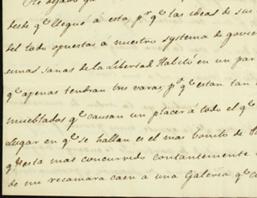 desde qe llegué á esta, pr qe las ideas de su
del todo opuestas á nuestro systema de govie
sumas sanas de la Libertad Habito en un par
qe apenas tendran tres varas, po qe estan tan
mueblados qe causan un placer á todo el qe
Lugar en qe se hallan es el mas bonito de
qe esta mas concurrido contantemente
de mi recamara caen á una Galeria qe